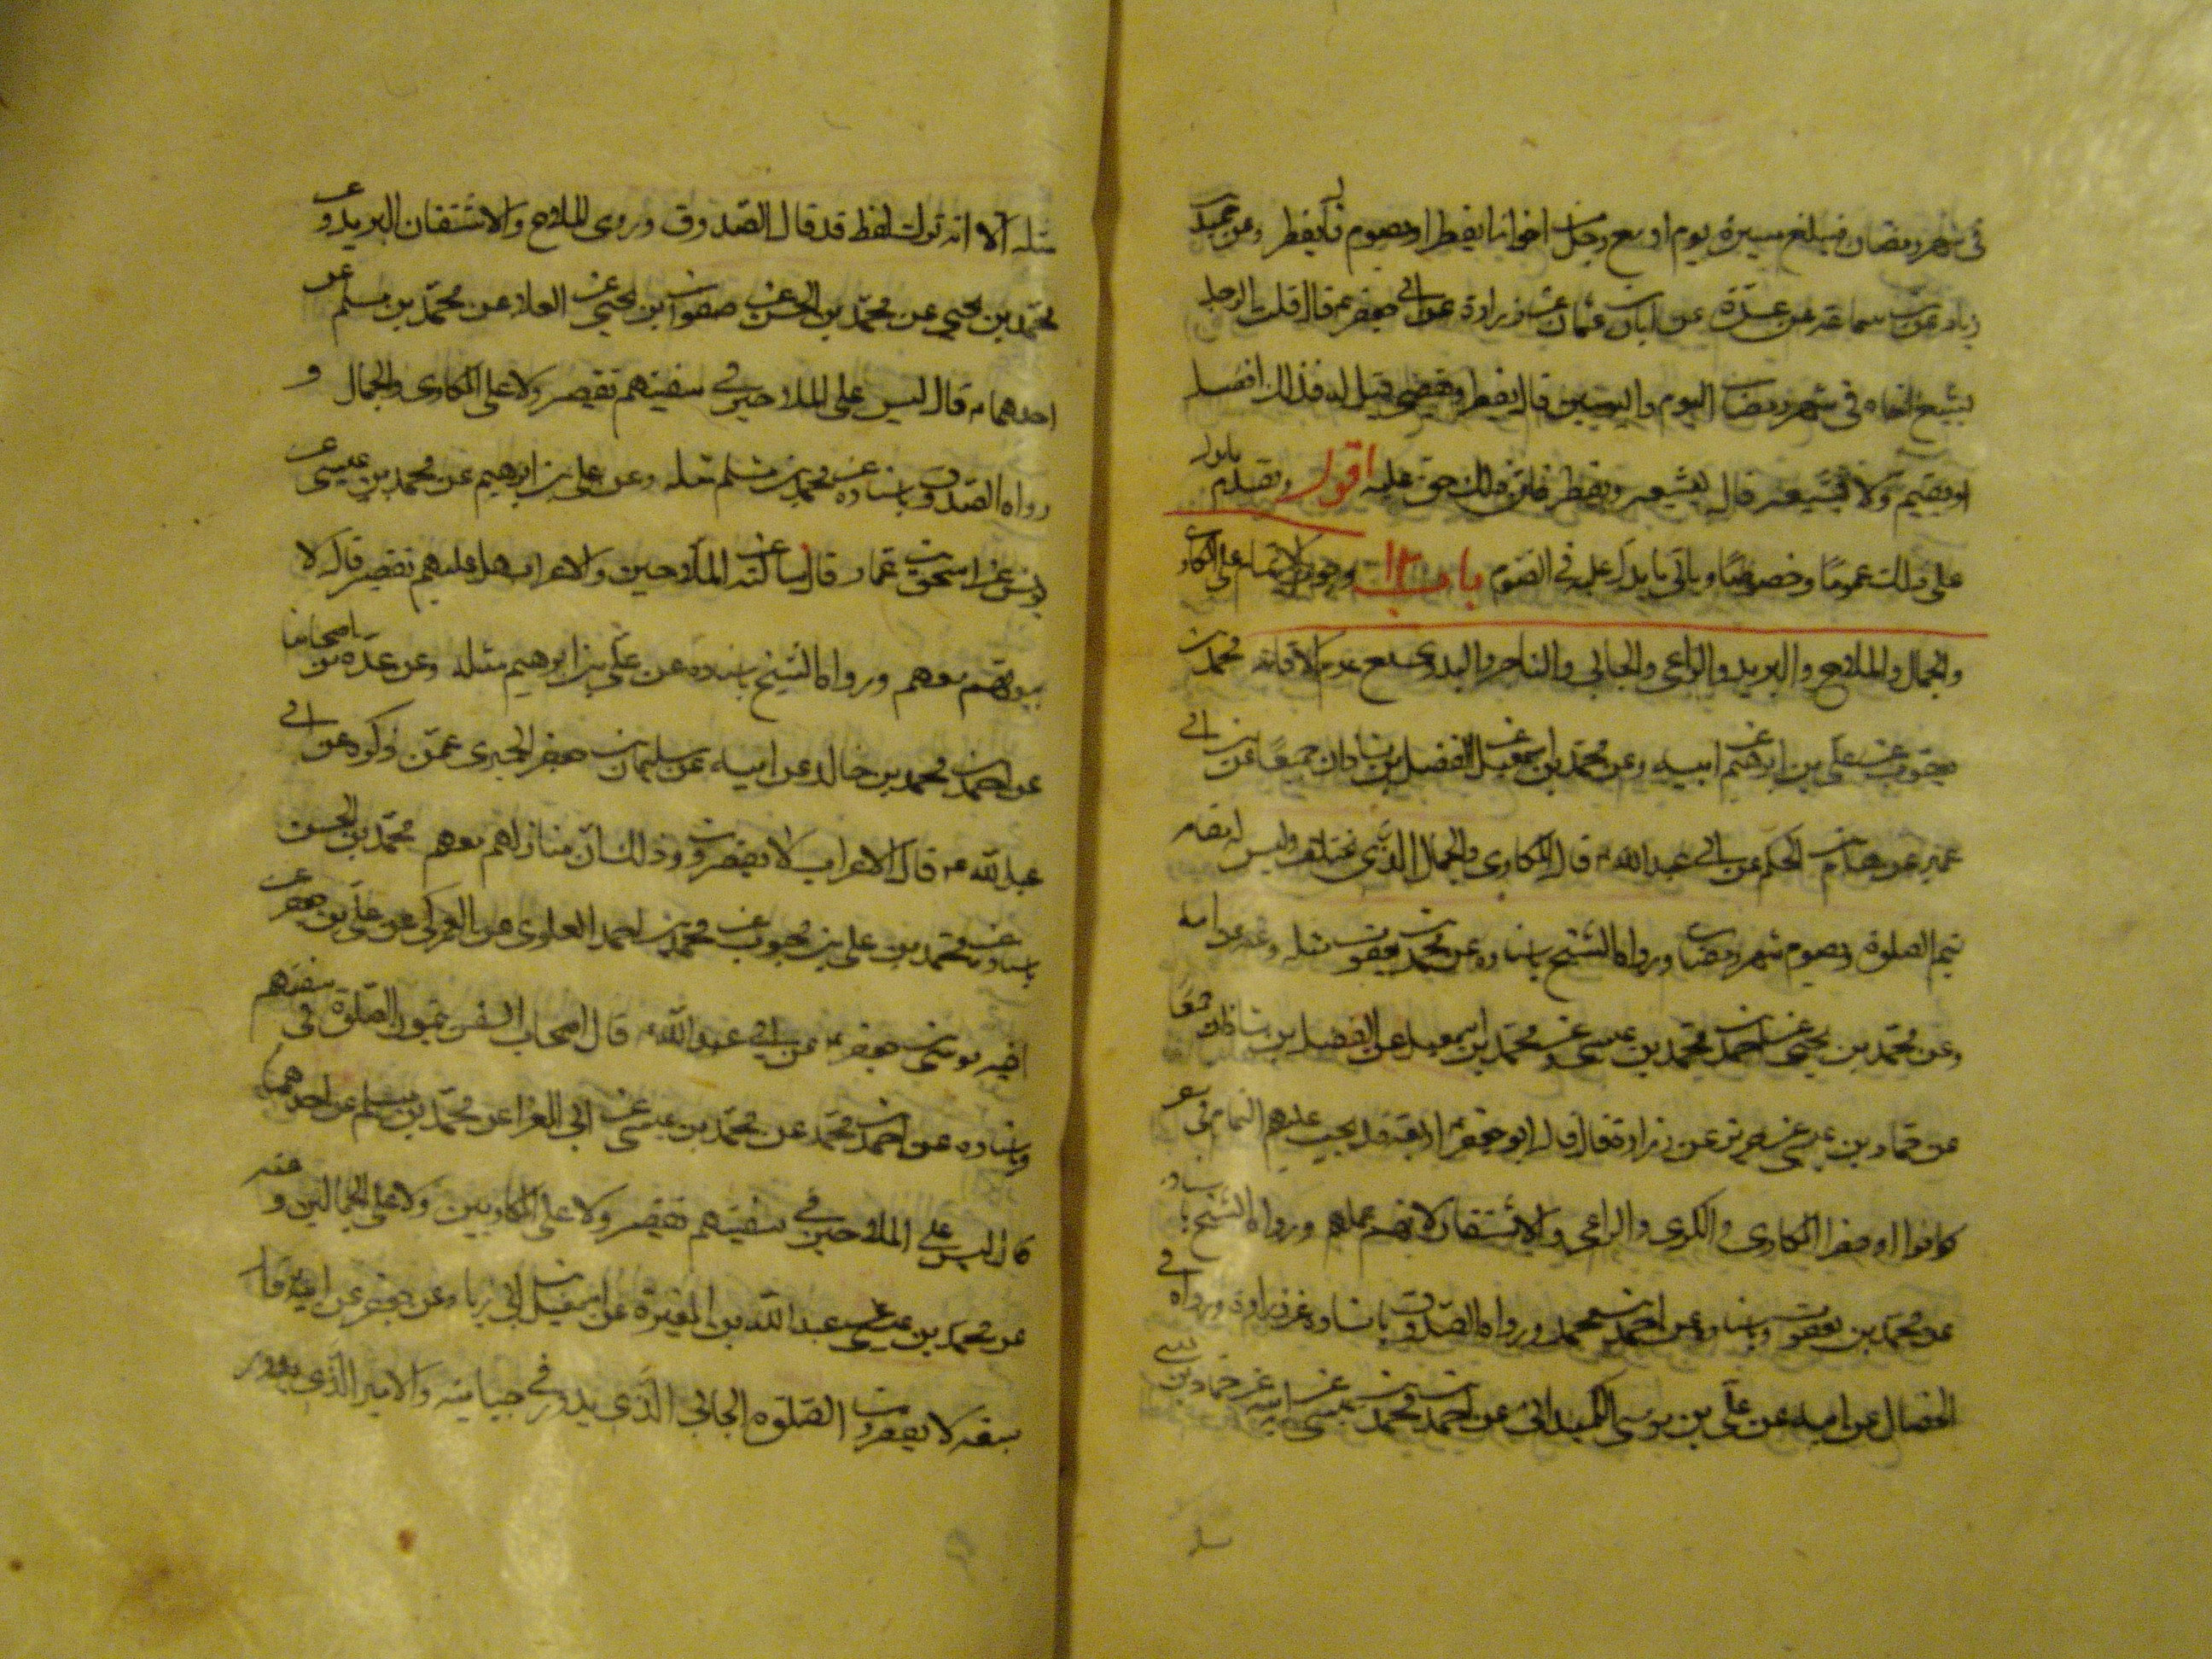 في شهر رمضان فيبلغ مسيرة يوم او مع رجل من اخواننا ايفطر او يصوم قال يفطر وعن حميد بن
زياد عن بن سماعة عن عدة عن ابان بن عثمان عن زرارة عن ابي جعفر ع قال قلت الرجل
يشيع اخاه في شهر رمضان اليوم واليومين قال يفطر ويقضي قيل له فذلك افضل
او يقيم ولا يشيعه قال يشيعه ويفطر فان ذلك حق عليه اقول وتقدم ما يدل
على ذلك عموما وخصوصا وياتي ما يدل عليه في الصوم باب ١٢ وجوب الاتمام على المكاري
والجمال والملاح والبريد والراعي والجابي والتاجر والبدوي مع عدم الاقامة محمد بن
يعقوب عن علي بن ابرهيم عن ابيه وعن محمد بن اسمعيل عن الفضل بن شاذان جميعا عن بن ابي
عمير عن هشام بن الحكم عن ابي عبدالله ع قال المكاري والجمال الذي يختلف وليس له مقام
يتم الصلوة ويصوم شهر رمضان ورواه الشيخ باسناده عن محمد بن يعقوب مثله وعنه عن ابيه
وعن محمد بن يحيى عن احمد بن محمد بن عيسى وعن محمد بن اسمعيل عن الفضل بن شاذان جميعا
عن حماد بن عيسى عن حريز عن زرارة قال قال ابو جعفر ع اربعة قد يجب عليهم التمام في سفر
كانوا او حضر المكاري والكري والراعي والاشتقان لانه عملهم ورواه الشيخ باسناده
عن محمد بن يعقوب وباسناده عن احمد بن محمد ورواه الصدوق باسناده عن زرارة ورواه في
الخصال عن ابيه عن علي بن موسى الكميداني عن احمد بن محمد بن عيسى عن ابيه عن حماد بن عيسى
مثله الا انه ترك لفظ قد قال الصدوق وروى الملاح والاشتقان البريد وعن
محمد بن يحيى عن محمد بن الحسن عن صفوان بن يحيى عن العلا عن محمد بن مسلم عن
احدهما ع قال ليس على الملاحين في سفينتهم تقصير ولا على المكاري والجمال و
رواه الصدوق باسناده عن محمد بن مسلم مثله وعن علي بن ابرهيم عن محمد بن عيسى عن
يونس عن اسحق بن عمار قال سالته عن الملاحين والاعراب هل عليهم تقصير قال لا
بيوتهم معهم ورواه الشيخ باسناده عن علي بن ابرهيم مثله وعن عدة من اصحابنا
عن احمد بن محمد بن خالد عن ابيه عن سليمان بن جعفر الجعفري عمن ذكره عن ابي
عبدالله ع قال الاعراب لا يقصرون وذلك ان منازلهم معهم محمد بن الحسن
باسناده عن محمد بن علي بن محبوب عن محمد بن احمد العلوي عن العمركي عن علي بن جعفر عن
اخيه موسى بن جعفر ع عن ابي عبدالله ع قال اصحاب السفن يتمون الصلوة في سفنهم
وباسناده عن احمد بن محمد عن محمد بن عيسى عن ابي المغرا عن محمد بن مسلم عن احدهما
قال ليس على الملاحين في سفينتهم تقصير ولا على المكاريين ولا على الجمالين وعنه
عن محمد بن عيسى عن عبدالله بن المغيرة عن اسمعيل بن ابي زياد عن جعفر عن ابيه قال
سبعة لا يقصرون الصلوة الجابي الذي يدور في جبايته والامير الذي يدور